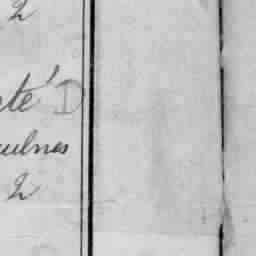 2
té D
ulnes
2